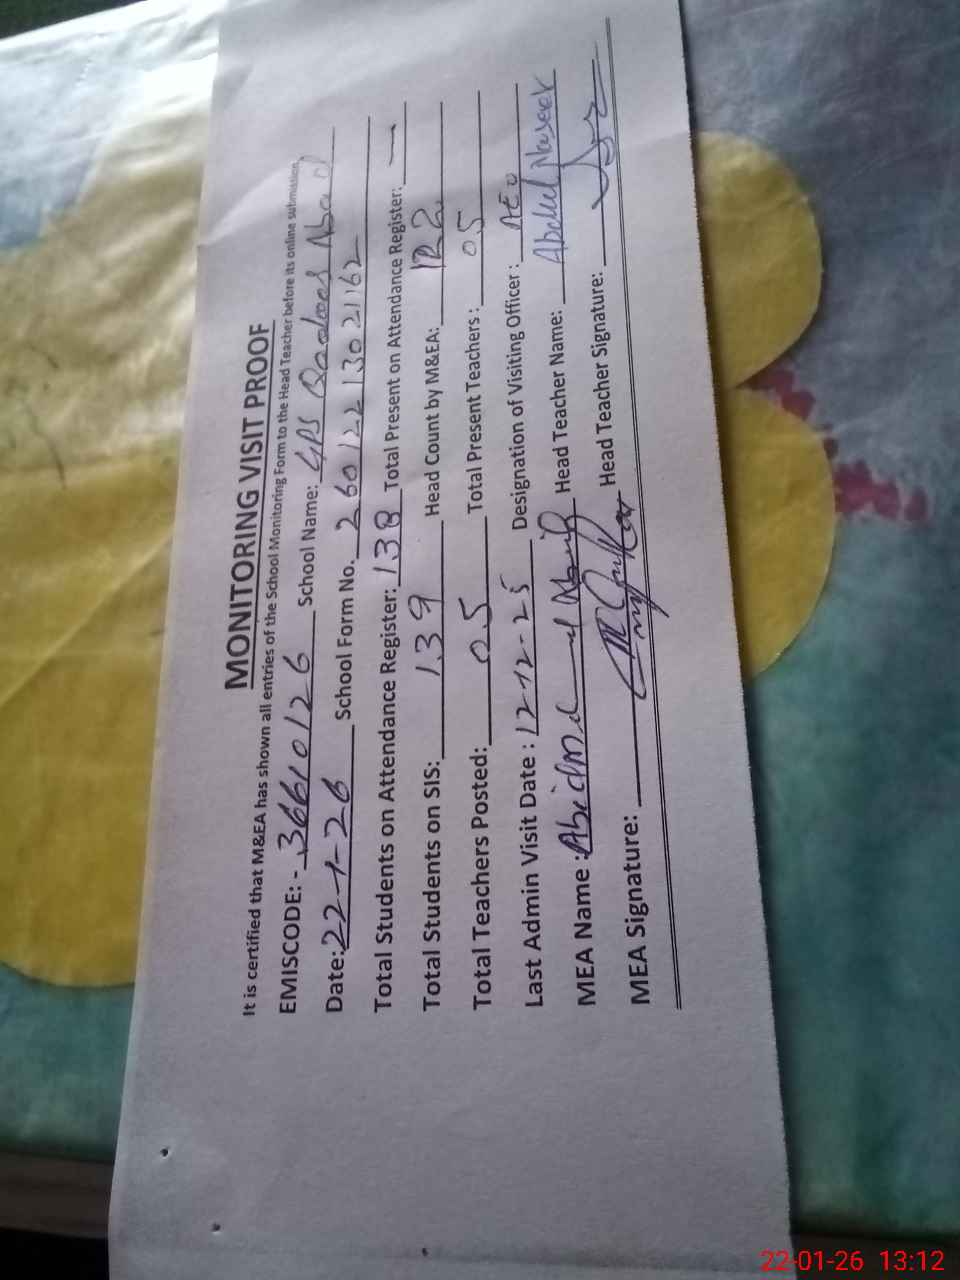 MONITORING VISIT PROOF
It is certified that M&EA has shown all entries of the School Monitoring Form to the Head Teacher before its online submission
EMISCODE: - 36610126 School Name: GPS Qadeer Abad
Date: 22-1-26 School Form No. 2601221302 1162
Total Students on Attendance Register: 138 Total Present on Attendance Register: —
Total Students on SIS: 139 Head Count by M&EA: 122
Total Teachers Posted: 05 Total Present Teachers: 05
Last Admin Visit Date : 12-12-25 Designation of Visiting Officer : AEO
MEA Name : Head Teacher Name: Abdul Naseer
MEA Signature: Head Teacher Signature:
22-01-26 13:12